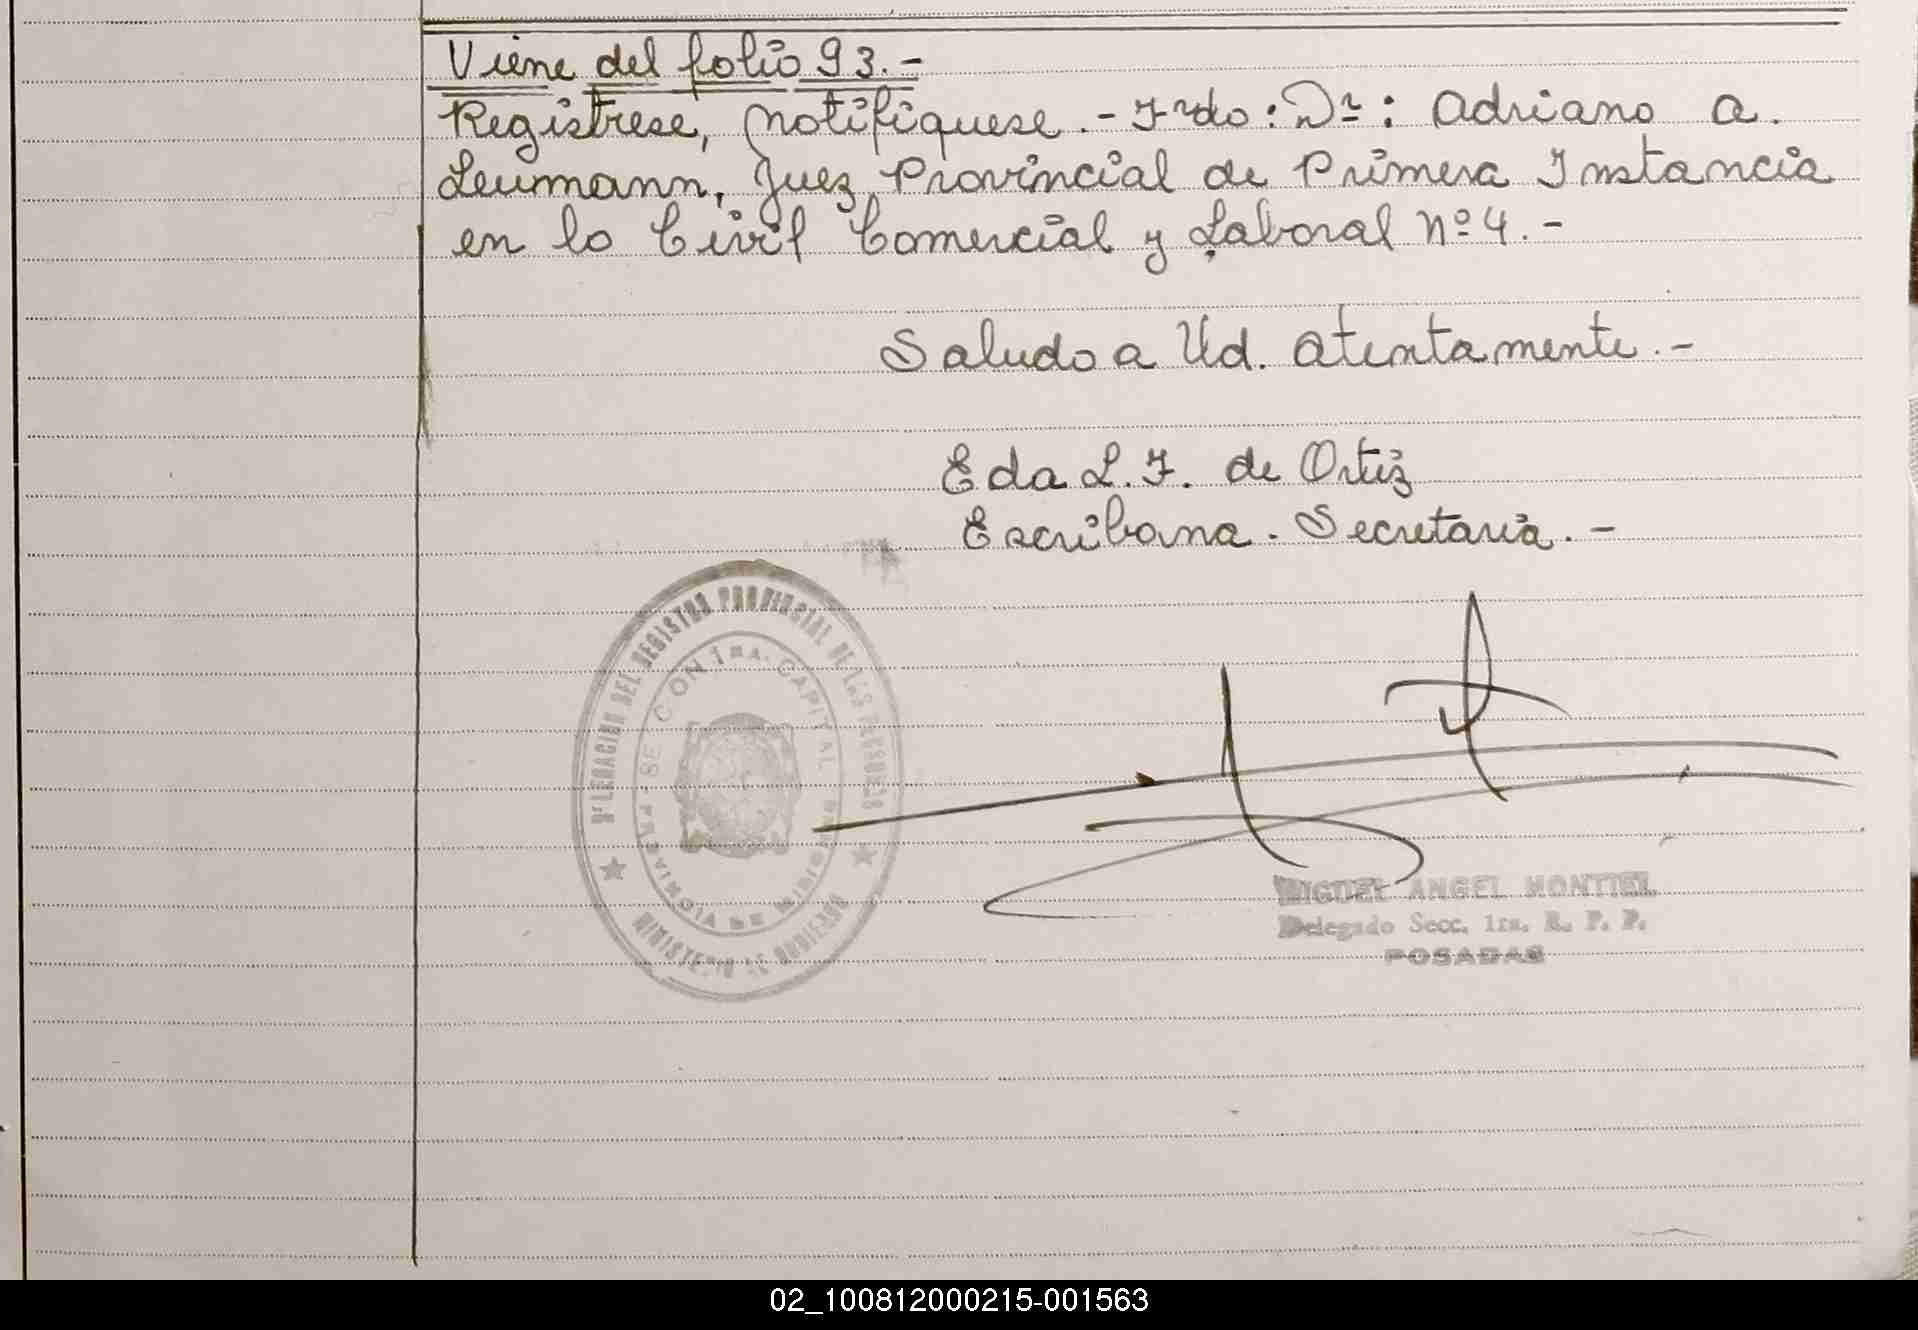 Viene del folio 93.-
Registrese, notifiquese.- Fdo: Dr: Adriano A.
Leumann, Juez Provincial de Primera Instancia
en lo Civil Comercial y Laboral Nº 4.-
Saludo a Ud. atentamente.-
Eda L. F. de Ortiz
Escribana. Secretaria.-
DELEGACION DEL REGISTRO PROVINCIAL DE LAS PERSONAS
SECCION 1RA. CAPITAL
PROVINCIA DE MISIONES
MINISTERIO DE GOBIERNO
MIGUEL ANGEL MONTIEL
Delegado Secc. 1ra. R. P. P.
POSADAS
02_100812000215-001563